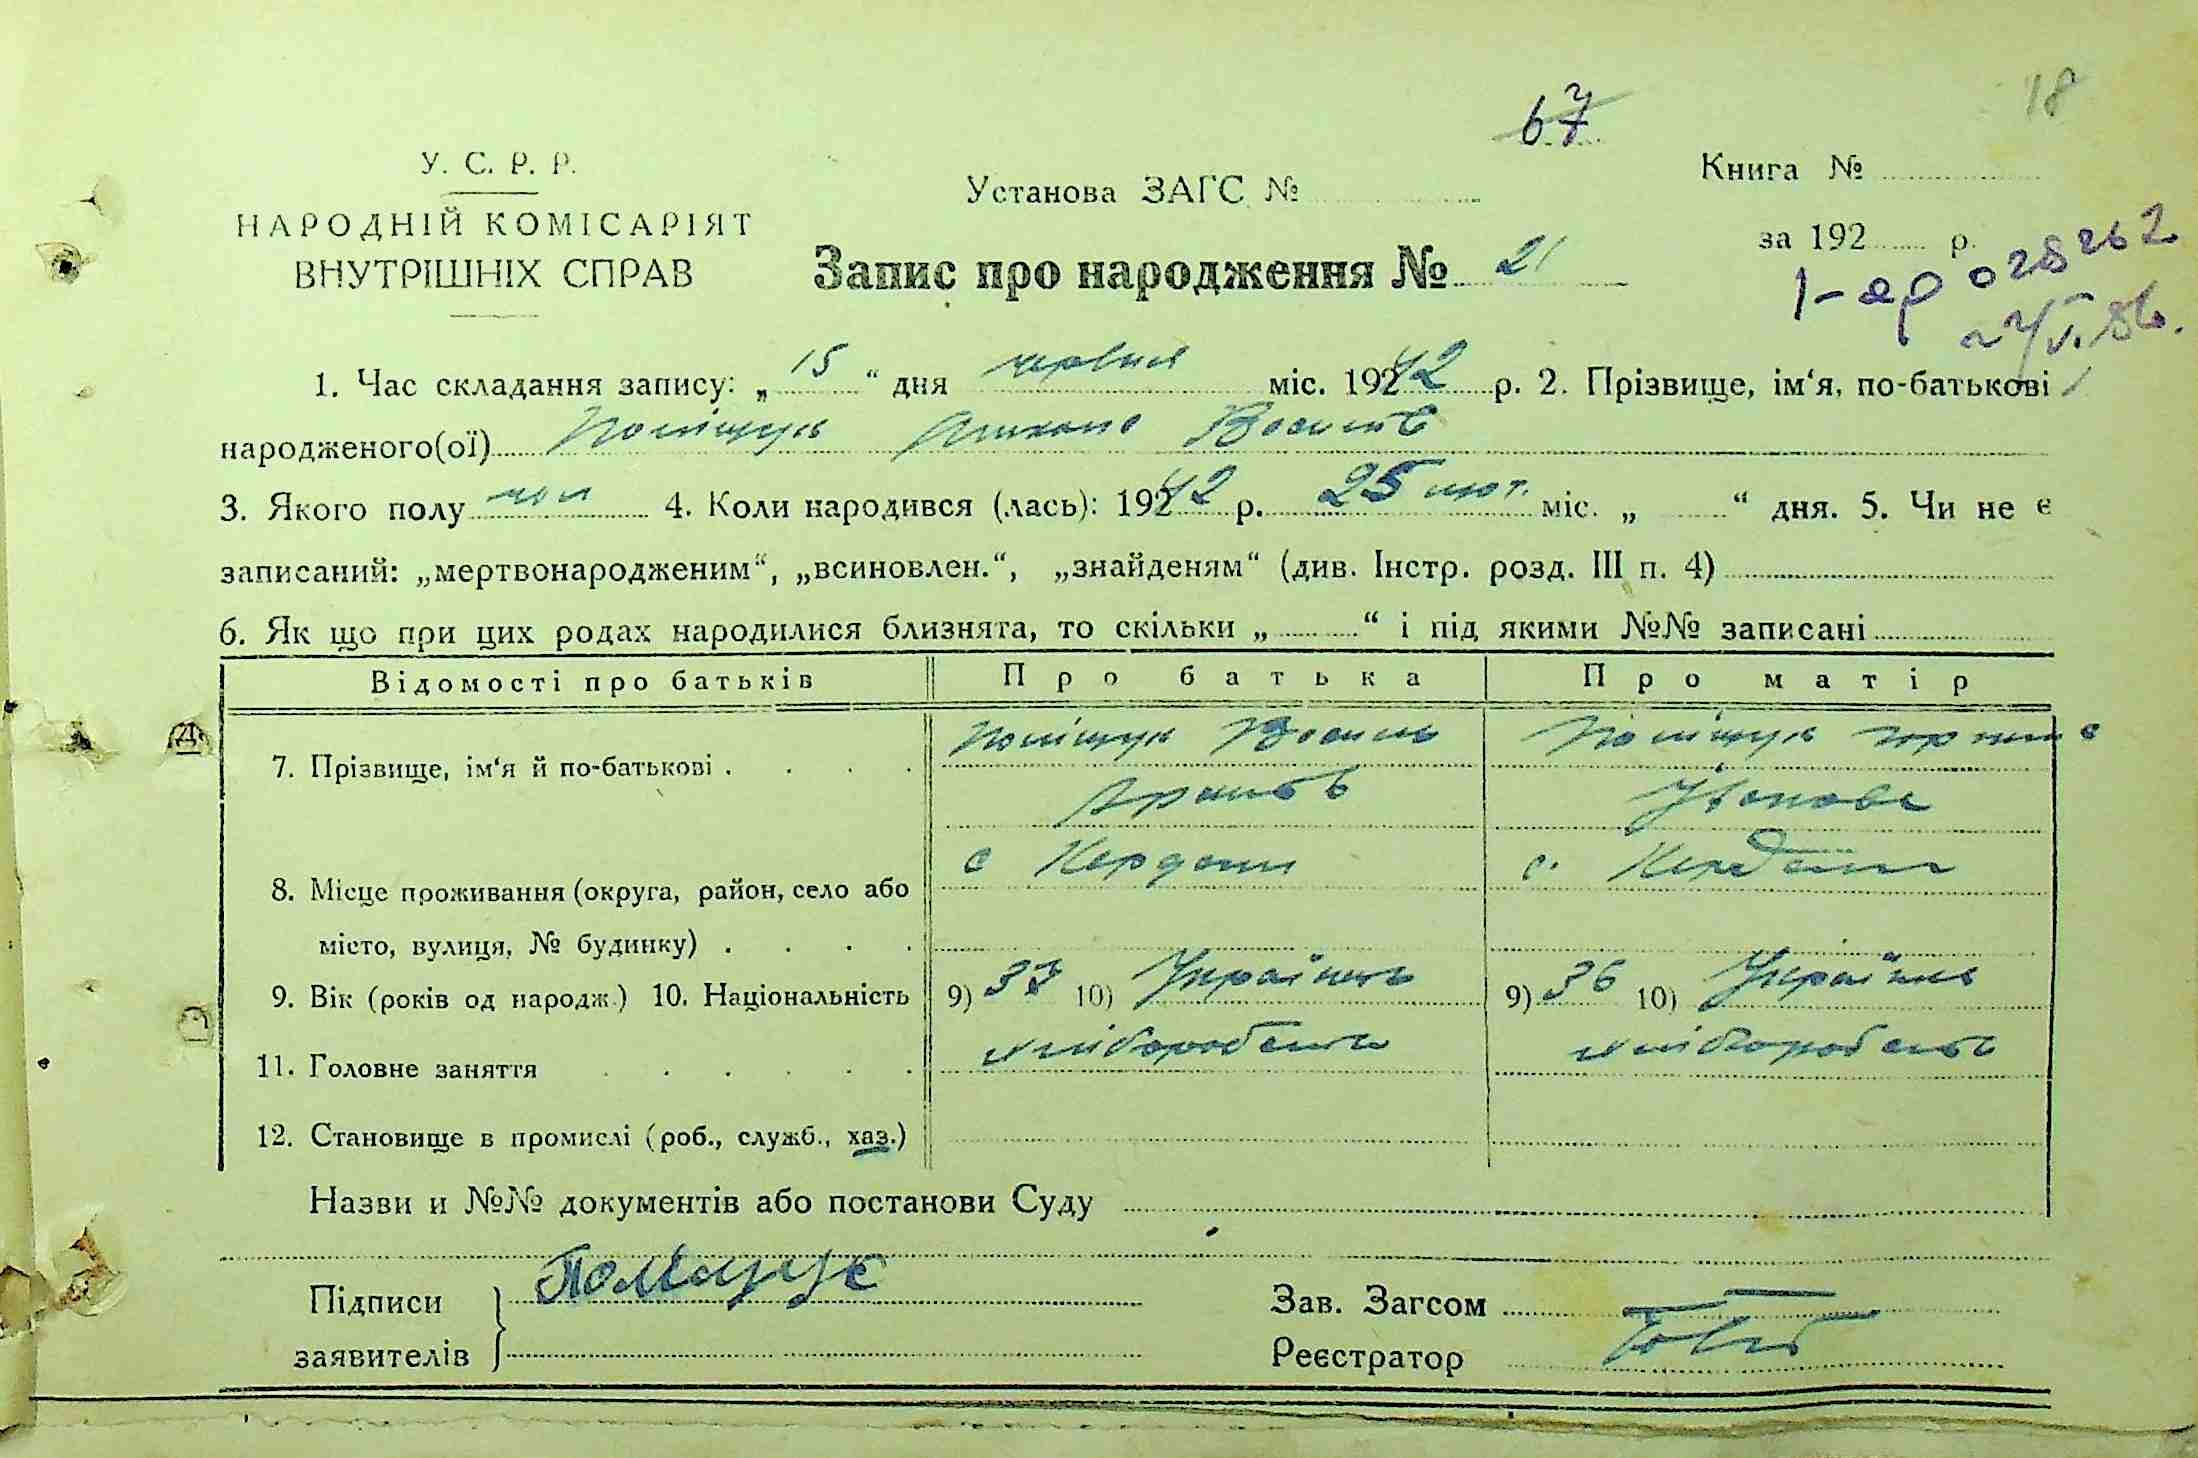 18
67
У. С. Р. Р.
НАРОДНІЙ КОМІСАРІЯТ
ВНУТРІШНІХ СПРАВ
Установа ЗАГС №
Книга №
за 192 р.
Запис про народження № 21
І-ар 028262
27/V.86.
1. Час складання запису: „ 15 “ дня червня міс. 19242 р. 2. Прізвище, ім‘я, по-батькові
народженого(ої) Поліщук Василів
3. Якого полу чол 4. Коли народився (лась): 19242 р. 25 лют. міс. „ “ дня. 5. Чи не є
записаний: „мертвонародженим“, „всиновлен.“, „знайденям“ (див. Інстр. розд. III п. 4)
6. Як що при цих родах народилися близнята, то скільки „ “ і під якими №№ записані
Відомості про батьків Про батька Про матір
7. Прізвище, ім‘я й по-батькові . . . . Поліщук Василь Поліщук
Іванова
8. Місце проживання (округа, район, село або с с.
місто, вулиця, № будинку) . . . .
9. Вік (років од народж.) 10. Національність 9) 37 10) Українець 9) 36 10) Українка
11. Головне заняття . . . . . .
12. Становище в промислі (роб., служб., хаз.)
Назви и №№ документів або постанови Суду
Підписи Поліщук Зав. Загсом
заявителів Реєстратор